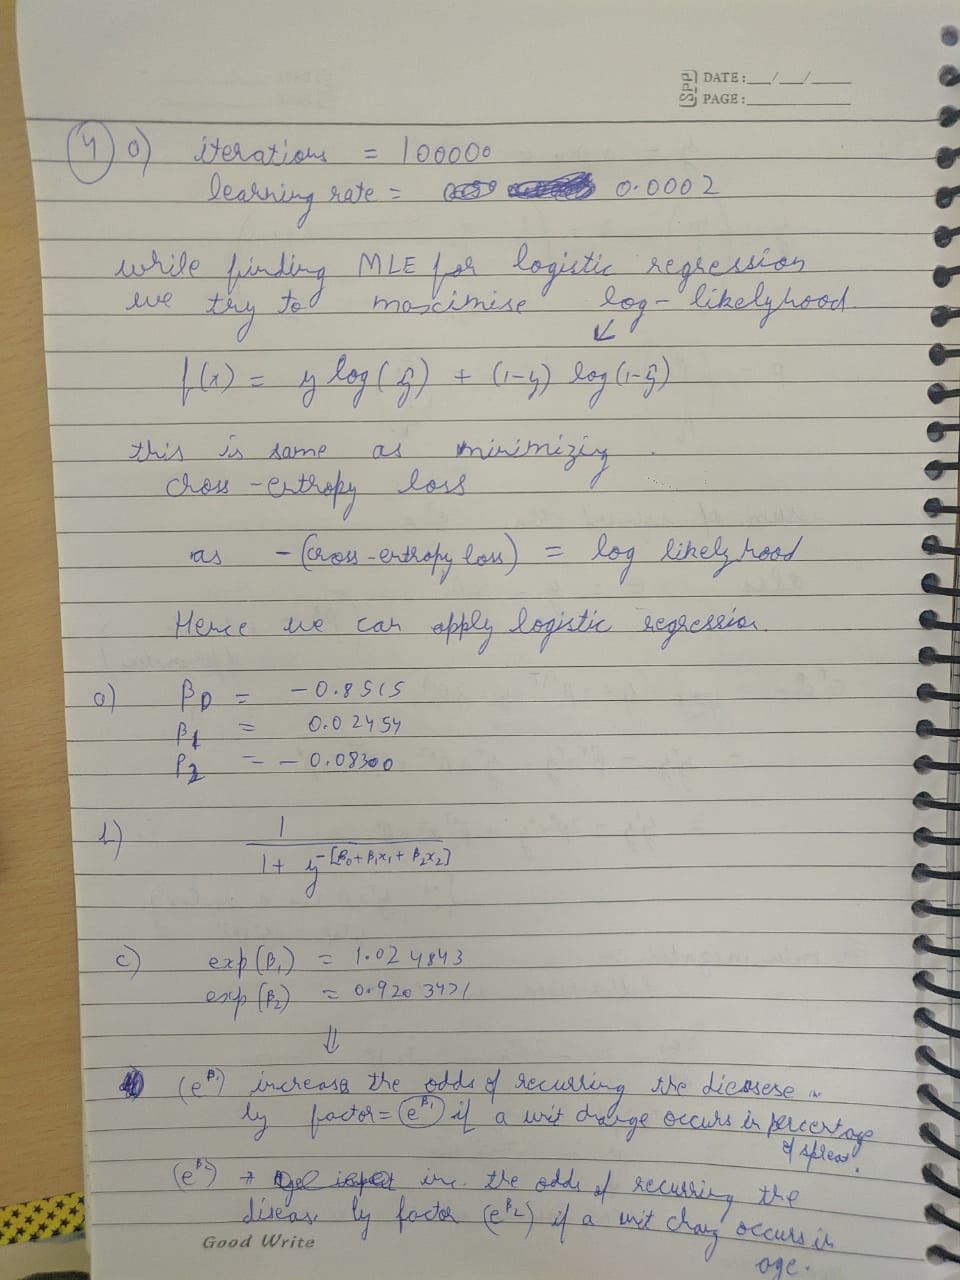 SPP DATE: __/__/____
PAGE: ________
4) a) iterations = 100000
learning rate = 0.0002
while finding MLE for logistic regression
we try to maximise log-likelyhood
↙
f(x) = y log(ŷ) + (1-y) log(1-ŷ)
this is same as minimizing
cross-entropy loss
as -(cross-entropy loss) = log likelyhood
Hence we can apply logistic regression.
a) β0 = -0.8515
β1 = 0.02454
β2 = -0.08300
b) 1
1 + y^-[β0+β1x1+β2x2]
c) exp(β1) = 1.024843
exp(β2) = 0.9203421
⇓
(e^β1) increase the odds of recurring the dicsese in
by factor = (e^β1) if a unit change occurs in percentage
of spleat.
(e^β2) inc. the odds of recurring the
diseas by factor (e^β2) if a unit chang occurs in
age.
Good Write